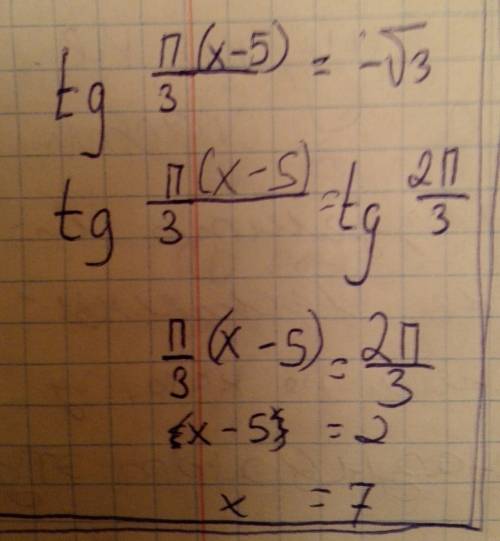 tg π(x-5)/3 = -√3
tg π(x-5)/3 = tg 2π/3
π/3 (x-5) = 2π/3
{x-5} = 2
x = 7